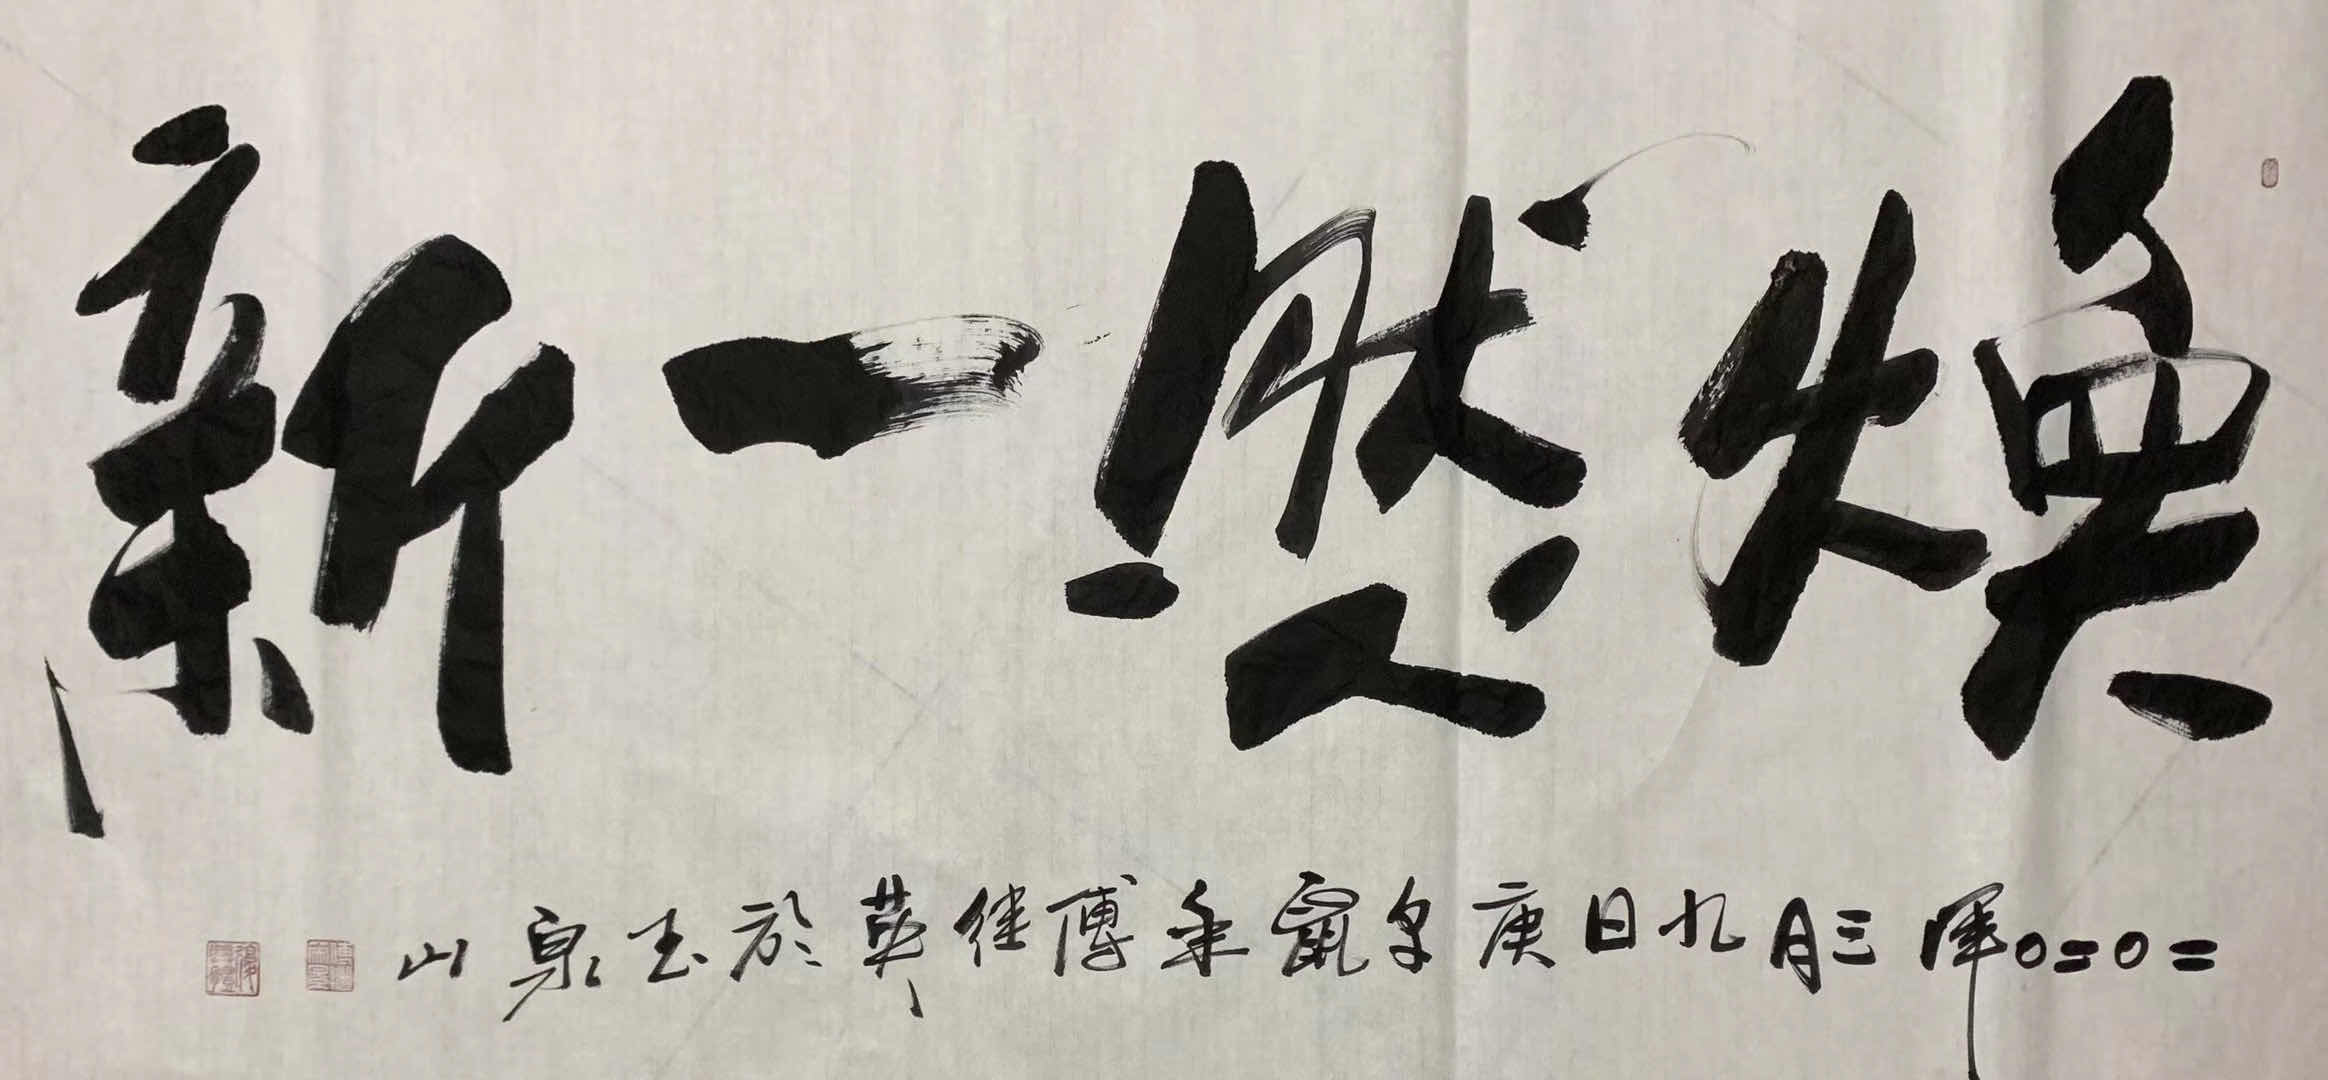 煥然一新
二〇二〇年三月九日庚子鼠年傅继英於玉泉山